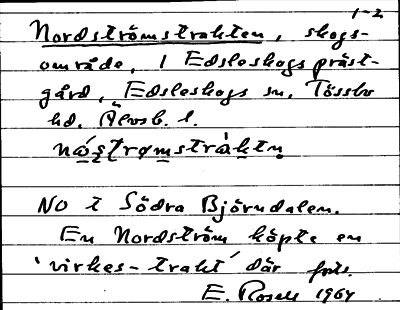 1-2
Nordströmstrakten, skogs-
område, i Edsleskogs präst-
gård, Edsleskogs sn, Tössbo
hd, Älvsb. l.
nás̲trømstràktn̥
NO t Södra Björndalen.
En Nordström köpte en
'virkes-trakt' där förs.
E. Rosell 1964